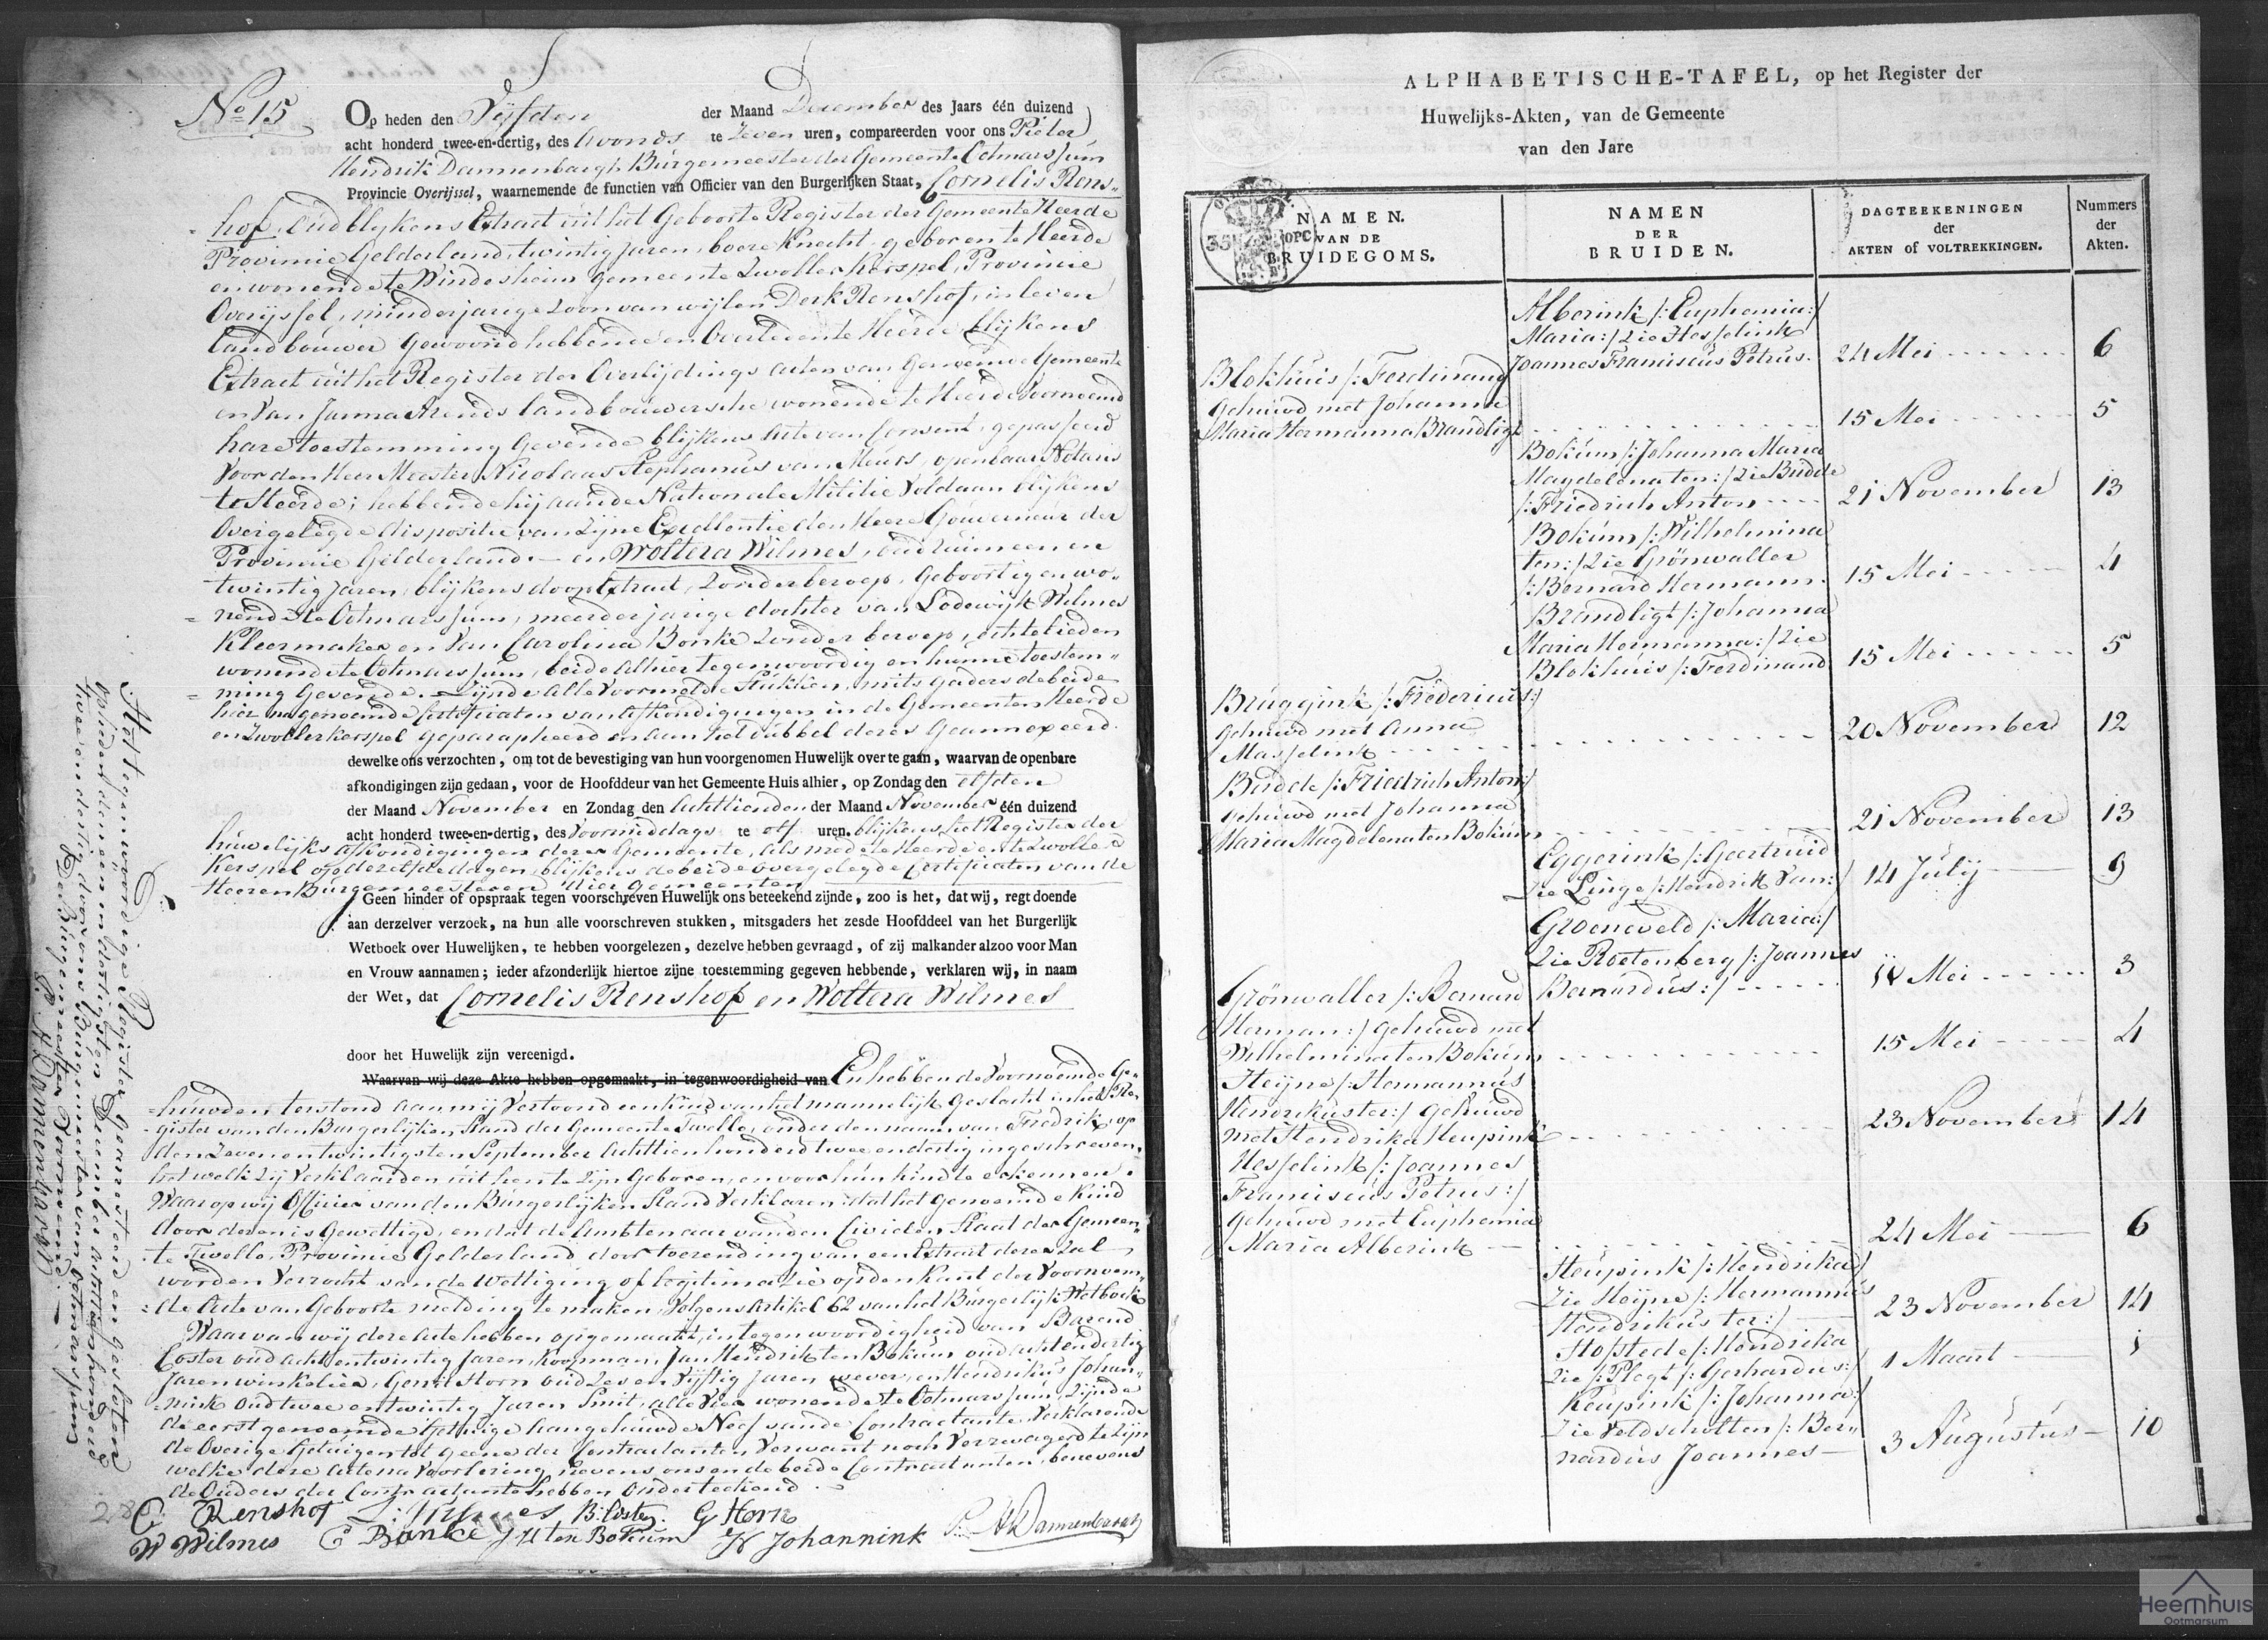 No 15
Op heden den Vijfden der Maand December des Jaars één duizend
acht honderd twee-en-dertig, des Avonds te Zeven uren, compareerden voor ons Pieter
Hendrik Dannenbargh Burgemeester der Gemeente Ootmarssum
Provincie Overijssel, waarnemende de functien van Officier van den Burgerlijken Staat, Cornelis Rens-
hof, oud blykens Extract uit het Geboorte Register der Gemeente Heerde
Provincie Gelderland, twintig Jaren, boere Knecht, geboren te Heerde
en wonende te Windesheim gemeente Zwollerkerspel, Provincie
Overijssel, minderjarige Zoon van wijlen Derk Renshof, in leven
landbouwer gewoond hebbende en Overleden te Heerde blijkens
Extract uit het Register der Overlijdings acten van genoemde Gemeente
en Van Janna Arends landbouwersche wonende te Heerde voornoemd
hare toestemming gevende blijkens Acte van Consent, gepasseerd
Voor den Heer Meester Nicolaas Stephanus van Meurs, openbaar Notaris
te Heerde; hebbende hij aan de Nationale Militie Voldaan blijkens
Overgelegde dispositie van Zijne Excellentie den Heere Gouverneur der
Provincie Gelderland. — en Woltera Wilmes, oud ruim een en
twintig Jaren, blijkens doop Extract, Zonder beroep, Geboortig en wo-
nende te Ootmarssum, meerderjarige dochter van Lodewijk Wilmes
Kleermaker en Van Carolina Bonke Zonder beroep, echtelieden
wonende te Ootmarssum, beide Alhier tegenwoordig en hunne toestem-
ming Gevende. Zijnde Alle Voormelde Stukken, mitsgaders de beide
hier na genoemde Certificaten van Afkondigingen in de Gemeenten Heerde
en Zwollerkerspel geparapheerd en aan het dubbel dezes Geannexeerd.
dewelke ons verzochten, om tot de bevestiging van hun voorgenomen Huwelijk over te gaan, waarvan de openbare
afkondigingen zijn gedaan, voor de Hoofddeur van het Gemeente Huis alhier, op Zondag den elfden
der Maand November en Zondag den Achttienden der Maand November één duizend
acht honderd twee-en-dertig, des Voormiddags te elf uren. blijkens het Register der
huwelijks afkondigingen dezer Gemeente, als mede te Heerde en te Zwoller
Kerspel op dezelfde dagen, blijkens de beide overgelegde Certificaten van de
Heeren Burgemeesteren dier gemeenten
Geen hinder of opspraak tegen voorschreven Huwelijk ons beteekend zijnde, zoo is het, dat wij, regt doende
aan derzelver verzoek, na hun alle voorschreven stukken, mitsgaders het zesde Hoofddeel van het Burgerlijk
Wetboek over Huwelijken, te hebben voorgelezen, dezelve hebben gevraagd, of zij malkander alzoo voor Man
en Vrouw aannamen; ieder afzonderlijk hiertoe zijne toestemming gegeven hebbende, verklaren wij, in naam
der Wet, dat Cornelis Renshof en Woltera Wilmes
door het Huwelijk zijn vereenigd.
Waarvan wij deze Akte hebben opgemaakt, in tegenwoordigheid van En hebben de Voornoemde Ge-
huwden terstond aan mij Vertoond een kind van het mannelijk Geslacht in het Re-
gister van den Burgerlijken Stand der Gemeente Twello, onder den naam van Fredrik, op
den Zevenentwintigsten September Achttienhonderd twee en dertig ingeschreven,
het welk Zij Verklaarden uit hen te Zijn Geboren, en voor hun kind te erkennen.
Waarop wij Officier van den Burgerlijken Stand Verklaren dat het Genoemde Kind
door dezen is Gewettigd, en dat de Ambtenaar van den Civielen Staat der Gemeen-
te Twello, Provincie Gelderland door toezending van een Extract dezes Zal
worden Verzocht van de Wettiging of legitimazie op den Kant der Voornoem-
de Acte van Geboorte melding te maken, Volgens Artikel 62 van het Burgerlijk Wetboek
Waar van wij deze Acte hebben opgemaakt, in tegenwoordigheid van Barend
Coster oud acht entwintig Jaren, Koopman, Jan Hendrik ten Bokum oud achtendertig
Jaren winkelier, Gerrit Horn oud Zes en Vijftig Jaren wever, en Hendrikus Johan-
nink oud twee entwintig Jaren Smit, alle Vier wonende te Ootmarssum, Zijnde
de eerstgenoemde Getuige aangehuwde Neef van de Contractante, Verklarende
de Overige Getuigen tot geene der Contractanten Verwant noch Verzwagerd te Zijn
welke deze Acte na Voorlezing nevens ons en de beide Contractanten, benevens
de Ouders der Contractante hebben Onderteekend.
C Renshof L: Wilmes B: Coster. G Horn
W Wilmes C Bonke J H ten Bokum H Johannink P. H Dannenbargh
Het tegenwoordige Register Gearresteerd en Gesloten
op heden den een en dertigsten December Achttienhonderd
twee en dertig door ons Burgemeester van Ootmarssum
De Burgemeester Voornoemd
P. H. Dannenbargh
ALPHABETISCHE-TAFEL, op het Register der
Huwelijks-Akten, van de Gemeente
van den Jare
NAMEN. VAN DE BRUIDEGOMS.
NAMEN DER BRUIDEN.
DAGTEEKENINGEN der AKTEN of VOLTREKKINGEN.
Nummers der Akten.
Alberink /: Euphemia
Maria :/ Zie Hesselink
Joannes Franciscus Petrus. 24 Mei 6
Blokhuis /: Ferdinand
Gehuwd met Johanna
Maria Hermanna Brandligt 15 Mei 5
Bokum /: Johanna Maria
Magdelena ten :/ Zie Budde
/: Friedrich Anton 21 November 13
Bokum /: Wilhelmina
ten :/ Zie Grönwaller
/: Bernard Hermann. 15 Mei 4
Brandligt /: Johanna
Maria Hermanna :/ Zie
Blokhuis /: Ferdinand 15 Mei 5
Bruggink /: Fredericus :/
gehuwd met Anna
Masselink 20 November 12
Budde /: Friedrich Anton :/
Gehuwd met Johanna
Maria Magdelena ten Bokum 21 November 13
Eggerink /: Geertruid
Zie Linge /: Hendrik Van :/ 14 Julij 9
Groeneveld /: Maria :/
Zie Roetenberg /: Joannes
Bernardus :/ Mei 3
Grönwaller /: Bernard
Herman :/ gehuwd met
Wilhelmina ten Bokum 15 Mei 4
Heijne /: Hermannus
Hendrikus ter :/ gehuwd
met Hendrika Heupink 23 November 14
Hesselink /: Joannes
Franciscus Petrus :/
gehuwd met Euphemia
Maria Alberink 24 Mei 6
Heupink /: Hendrika :/
Zie Heijne /: Hermannus
Hendrikus ter :/ 23 November 14
Hofstede /: Hendrika
Zie /: Plegt /: Gerhardus :/ 1 Maart 1
Keupink /: Johanna :/
Zie Veldscholten /: Ber-
nardus Joannes 3 Augustus 10
Heemhuis
Ootmarsum